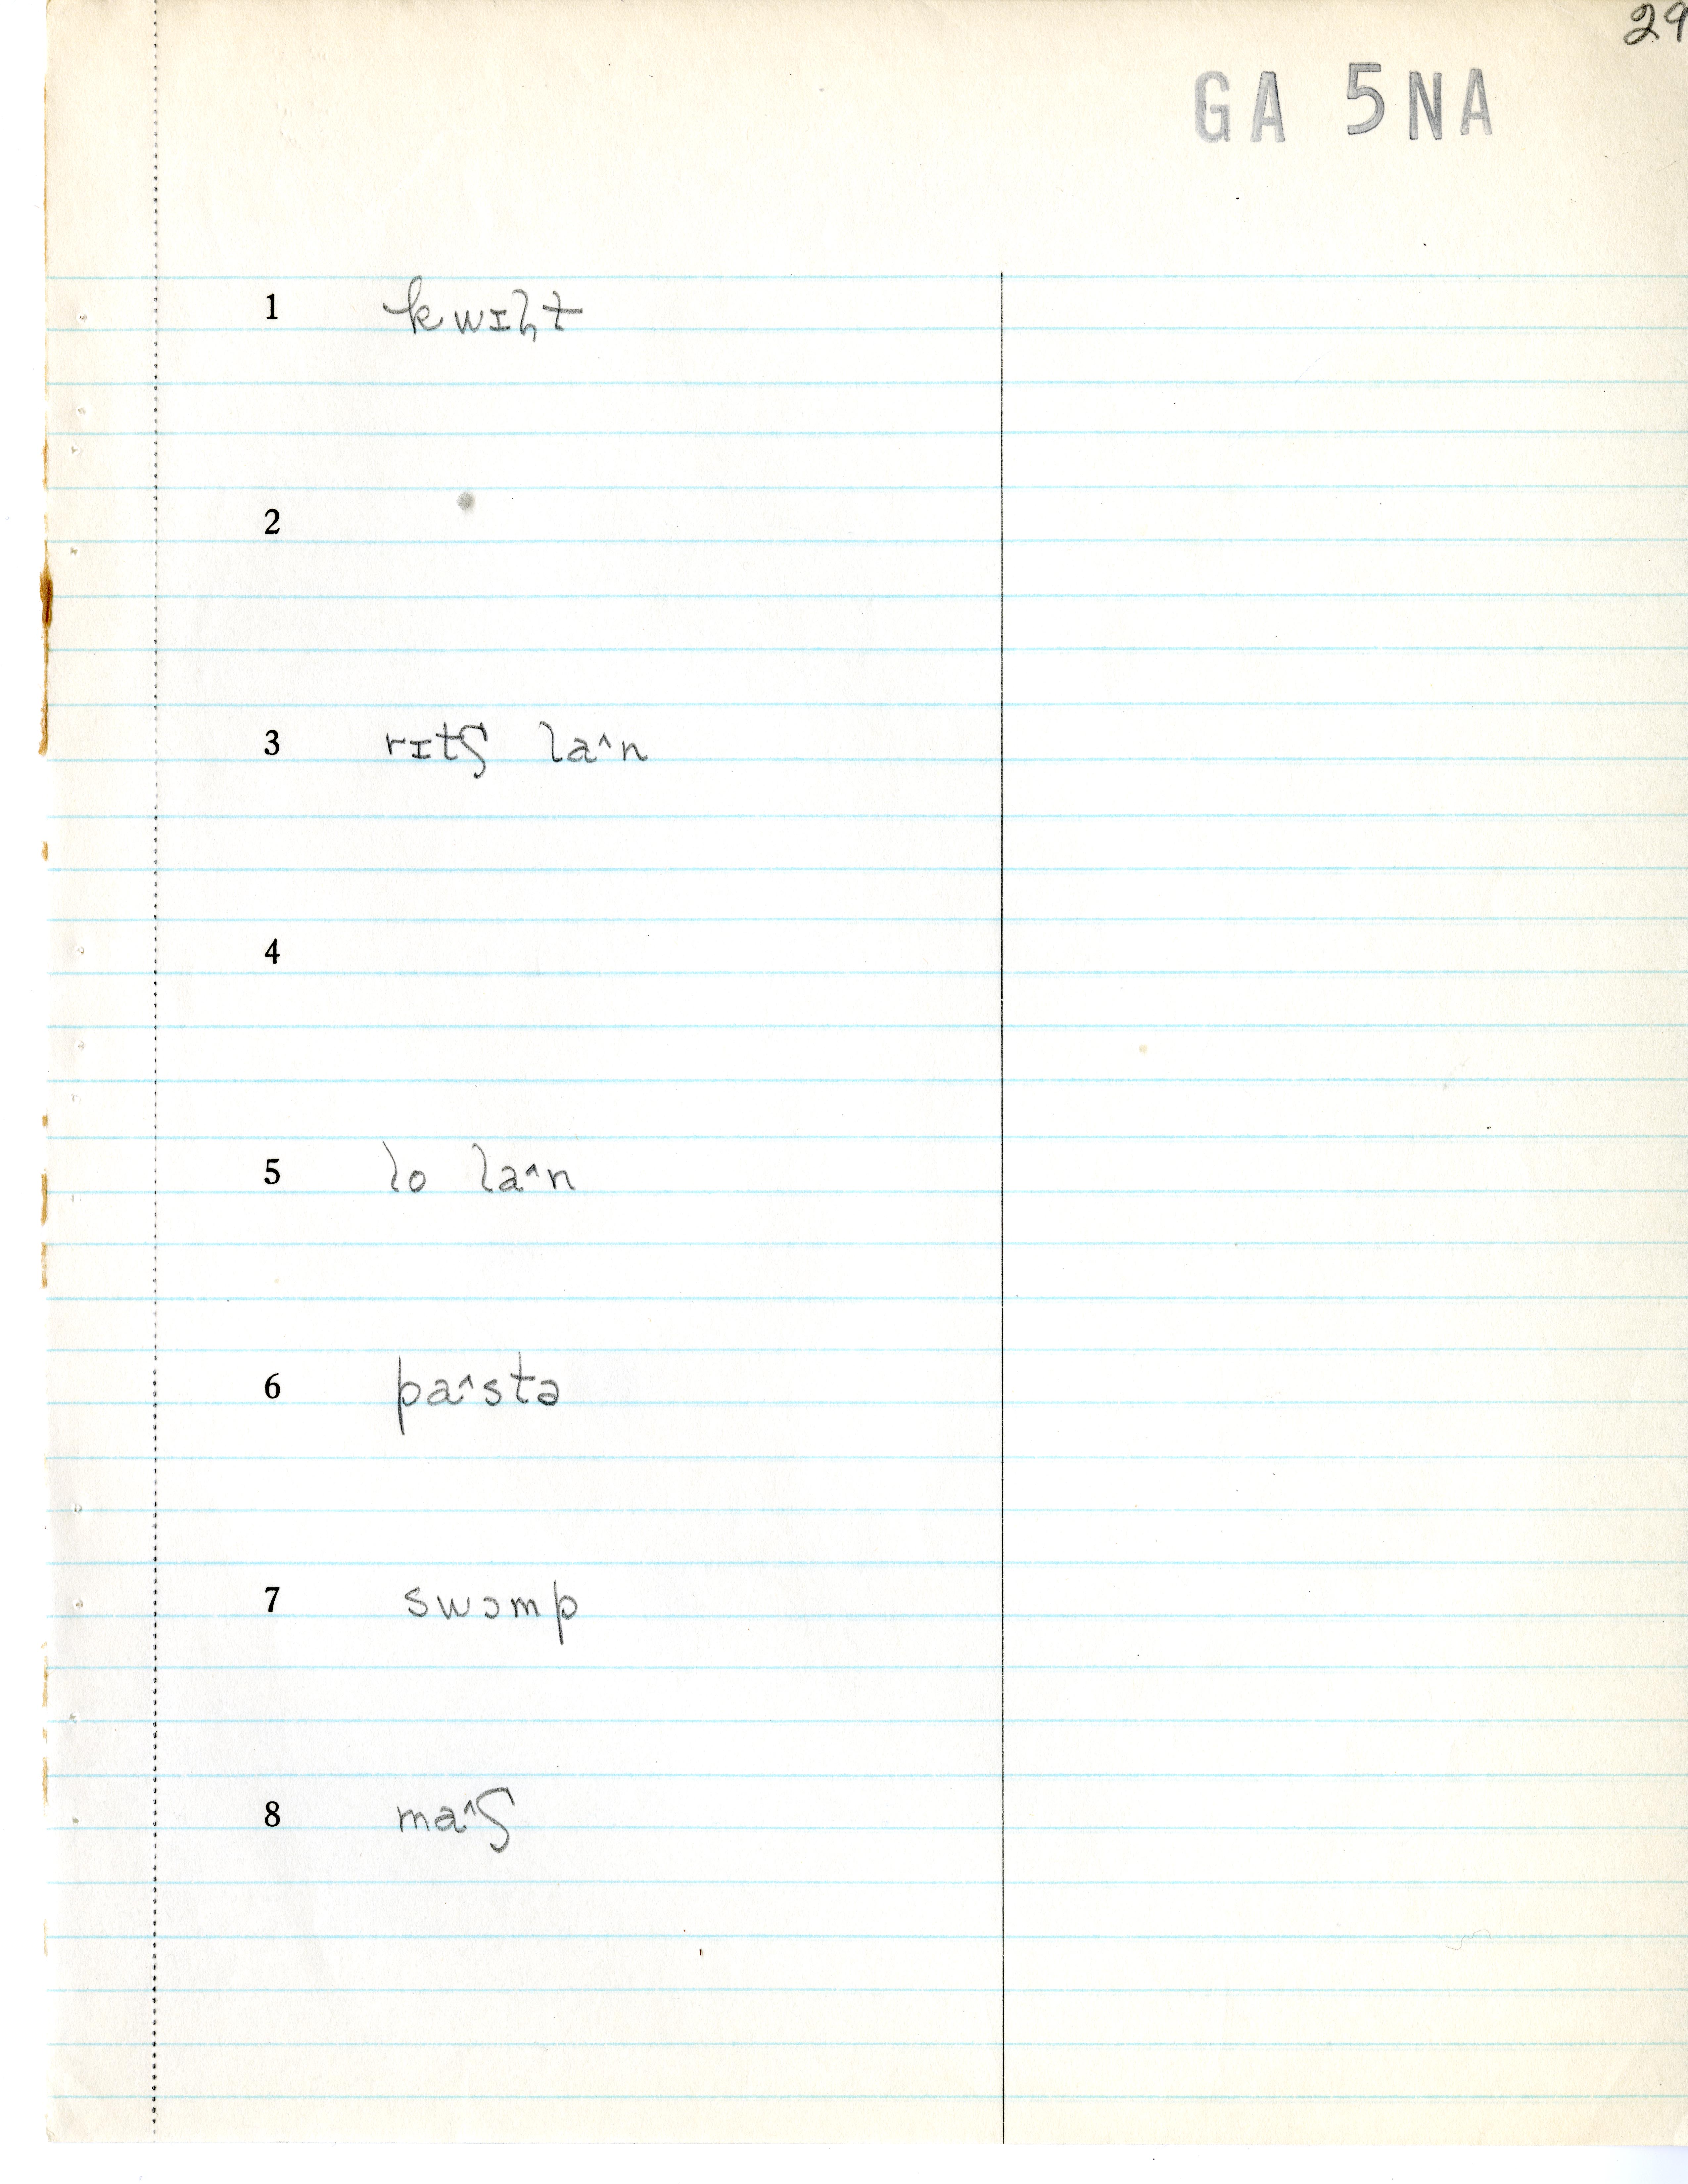 29
GA 5NA
1 kwɪl̡t
2
3 rɪtʃ la^n
4
5 lo la^n
6 pa^stə
7 swɔmp
8 ma^ʃ